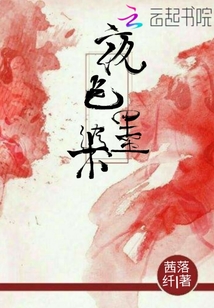 云起书院
夜色墨染
茜落
纤著